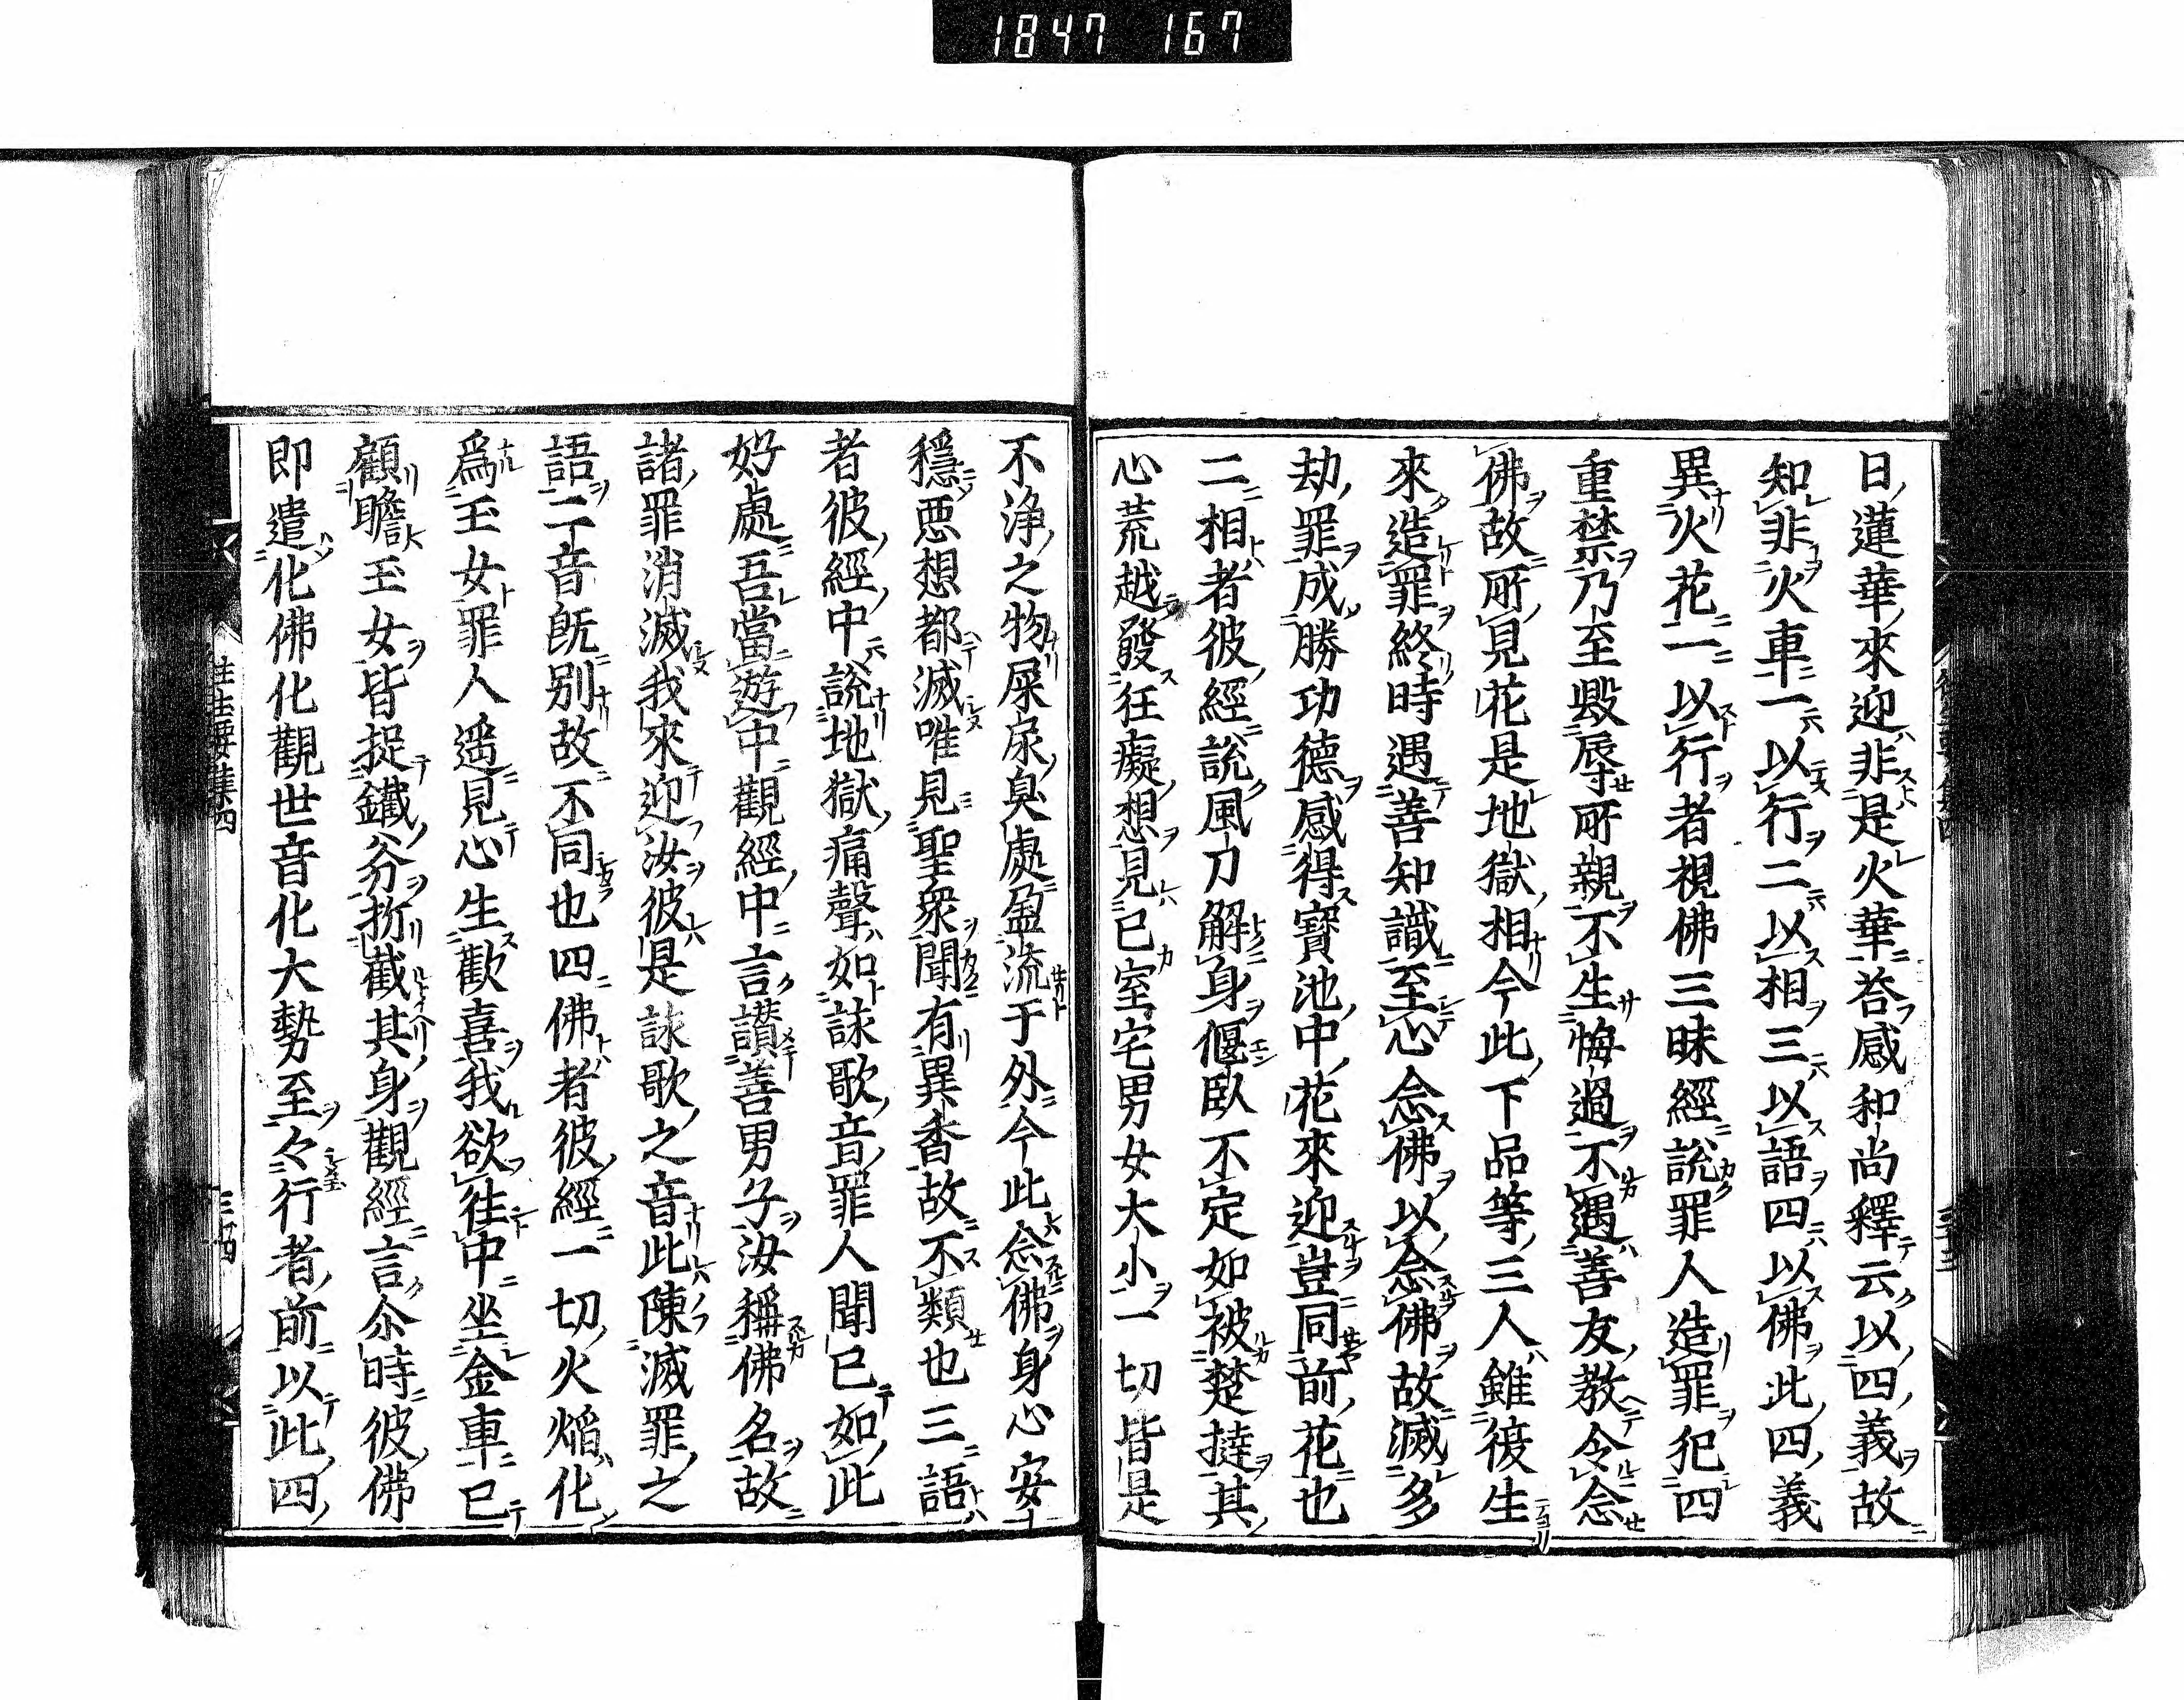 1847 167
日蓮華來迎非是火華荅感和尚釋云以四義故
知非火車一以行二以相三以語四以佛此四義
異火花一以行者視佛三昧經說罪人造罪犯四
重禁乃至毀辱所親不生悔過不遇善友教令念
佛故所見花是地獄相今此下品等三人雖復生
來造罪終時遇善知識至心念佛以念佛故滅多
劫罪成勝功德感得寶池中花來迎豈同前花也
二相者彼經說風刀解身偃臥不定如被楚撻其
心荒越發狂癡想見已室宅男女大小一切皆是
不淨之物屎尿臭處盈流于外今此念佛身心安
穩悪想都滅唯見聖衆聞有異香故不類也三語
者彼經中說地獄痛聲如詠歌音罪人聞已如此
好處吾當遊中觀經中言讃善男子汝稱佛名故
諸罪消滅我來迎汝彼是詠歌之音此陳滅罪之
語二音既別故不同也四佛者彼經一切火焰化
爲玉女罪人遥見心生歡喜我欲往中坐金車已
顧瞻玉女皆捉鐵斧折截其身觀經言尒時彼佛
即遣化佛化觀世音化大勢至々行者前以此四
往生要集四
三四